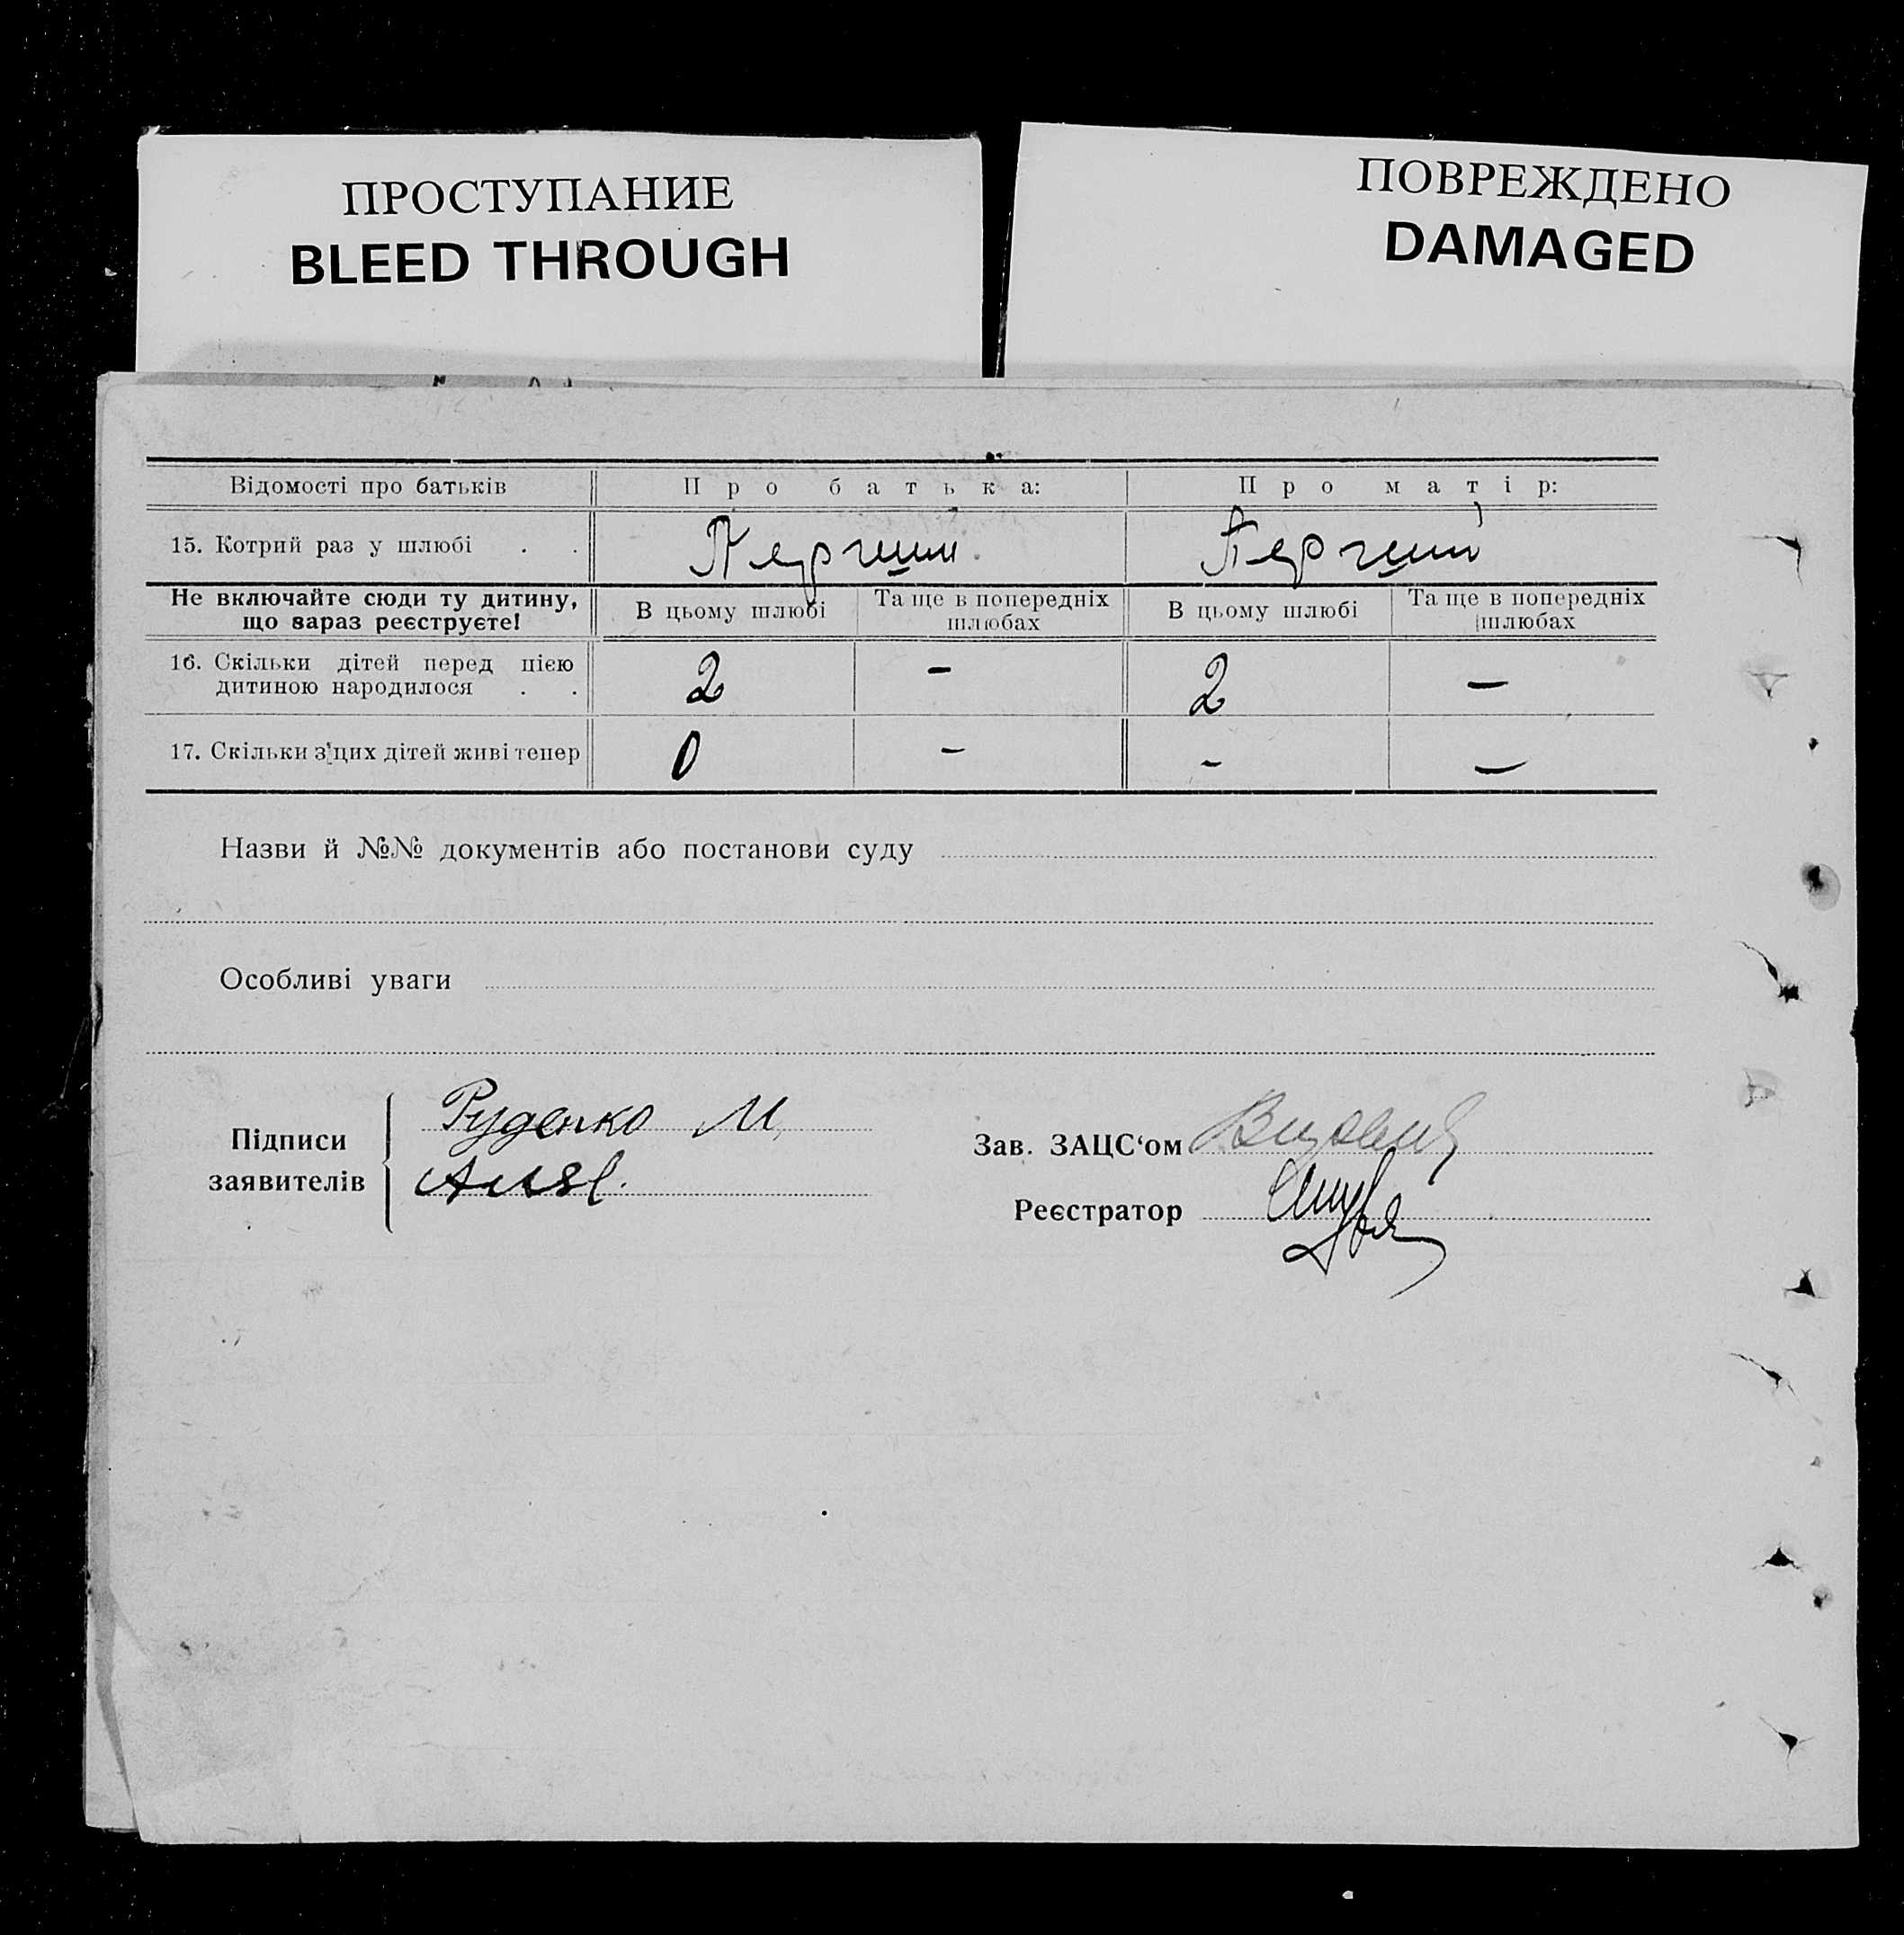 ПРОСТУПАНИЕ
BLEED THROUGH
ПОВРЕЖДЕНО
DAMAGED
Відомості про батьків Про батька: Про матір:
15. Котрий раз у шлюбі . . Перший Перший
Не включайте сюди ту дитину, що зараз реєструєте! В цьому шлюбі Та ще в попередніх шлюбах В цьому шлюбі Та ще в попередніх шлюбах
16. Скільки дітей перед цією
дитиною народилося . . 2 - 2 -
17. Скільки з'цих дітей живі тепер 0 - - -
Назви й №№ документів або постанови суду
Особливі уваги
Підписи заявителів
Руденко М,
Зав. ЗАЦС‘ом
Реєстратор